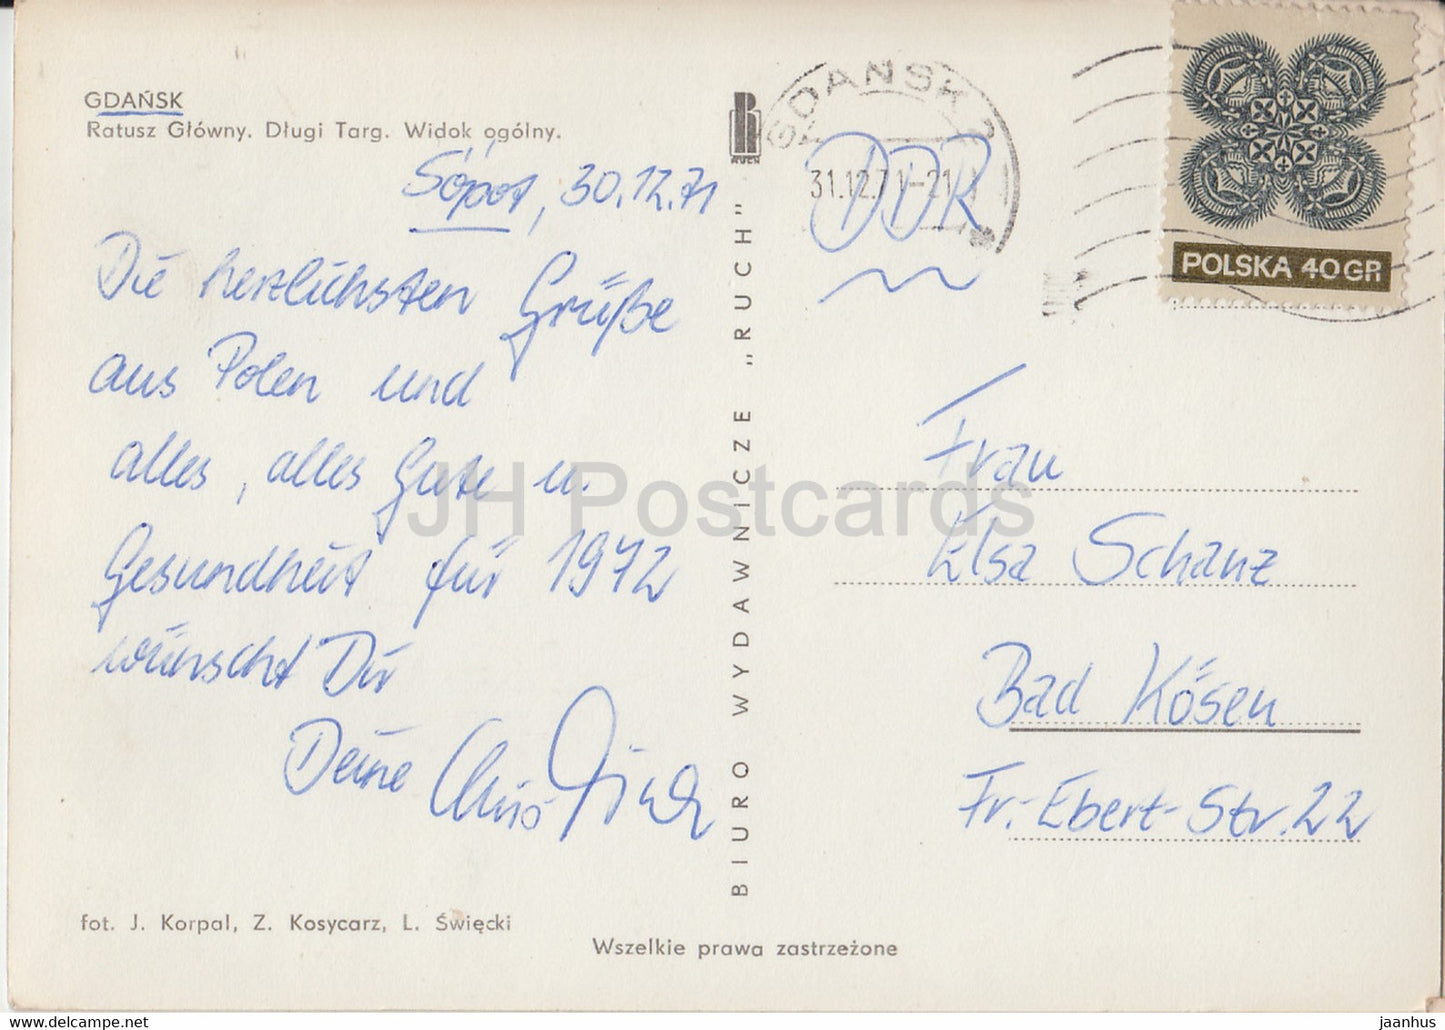 GDAŃSK
Ratusz Główny. Długi Targ. Widok ogólny.
Sópot, 30.12.71
Die herzlichsten Grüße
aus Polen und
alles, alles Gute u.
Gesundheit für 1972
wünscht Dir
Deine
fot. J. Korpal, Z. Kosycarz, L. Święcki
Wszelkie prawa zastrzeżone
RUCH
BIURO WYDAWNICZE „RUCH"
GDAŃSK 2
31.12.71-21
DDR
POLSKA 40GR
Frau
Elsa Schanz
Bad Kösen
Fr.-Ebert-Str. 22
JH Postcards
https://www.delcampe.net
jaanhus